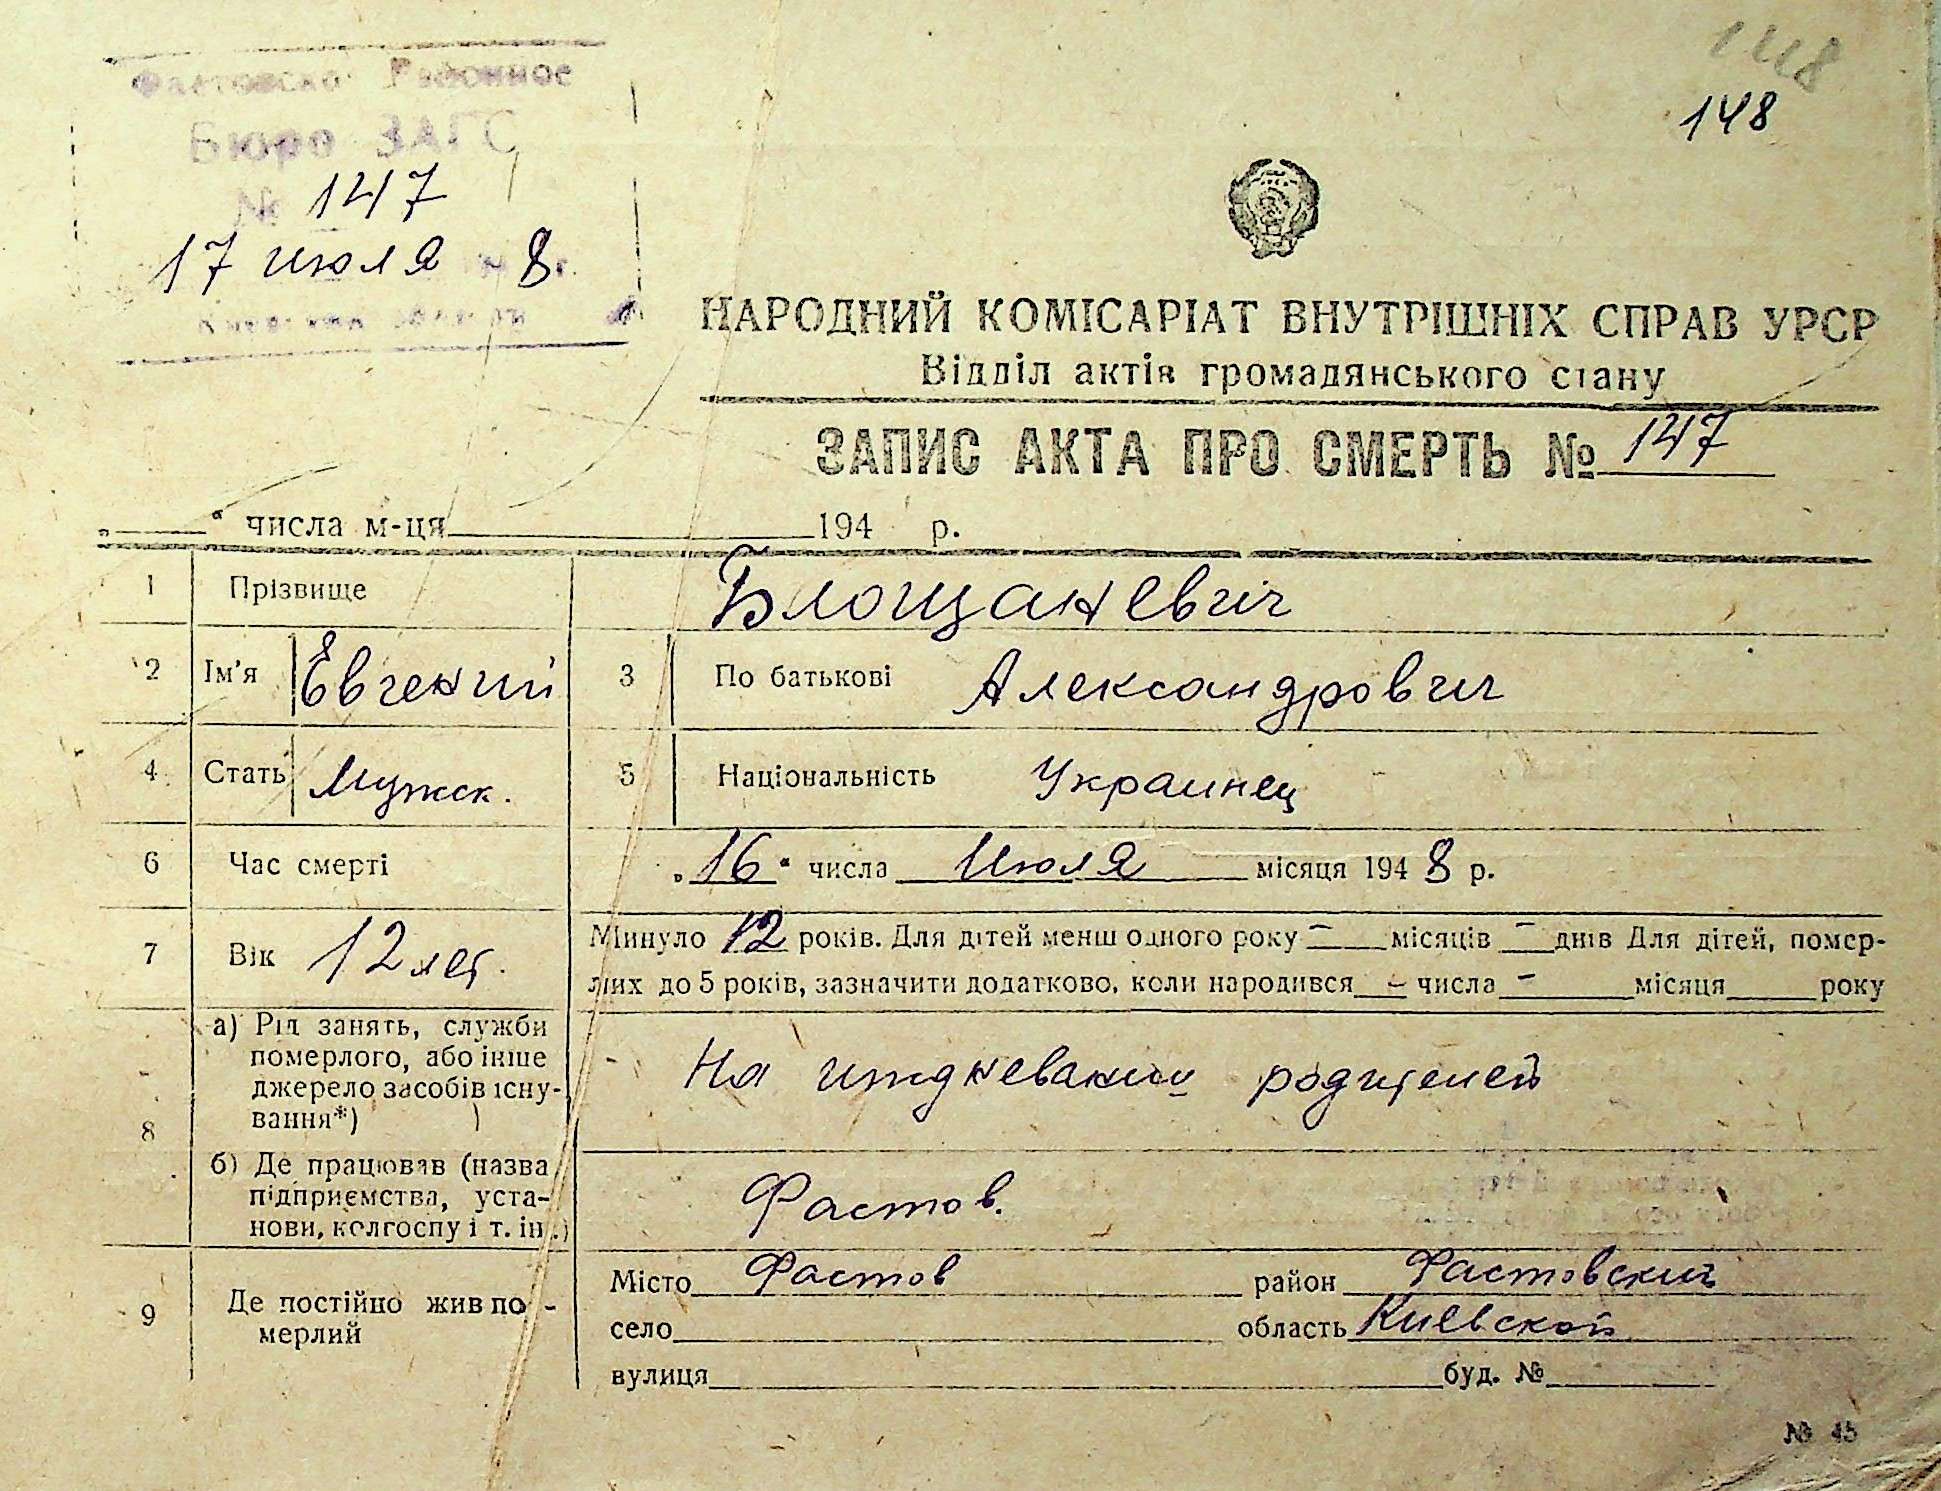 1418
148
Фастовско Районное
Бюро ЗАГС
№ 147
17 июля 8 г.
НАРОДНИЙ КОМІСАРІАТ ВНУТРІШНІХ СПРАВ УРСР
Відділ актів громадянського стану
ЗАПИС АКТА ПРО СМЕРТЬ № 147
„ “ числа м-ця 194 р.
1 Прізвище Блощаневич
2 Ім'я Евгений 3 По батькові Александрович
4 Стать Мужск. 5 Національність Украинец
6 Час смерті „16“ числа Июля місяця 1948 р.
7 Вік 12 лет. Минуло 12 років. Для дітей менш одного року – місяців – днів Для дітей, помер-
лих до 5 років, зазначити додатково, коли народився – числа – місяця року
8 а) Рід занять, служби
померлого, або інше
джерело засобів існу-
вання*)
На иждневании родителей
б) Де працював (назва
підприємства, уста-
нови, колгоспу і т. ін.)
Фастов.
9 Де постійно жив по-
мерлий
Місто Фастов район Фастовский
село область Киевской
вулиця буд. №
№ 45